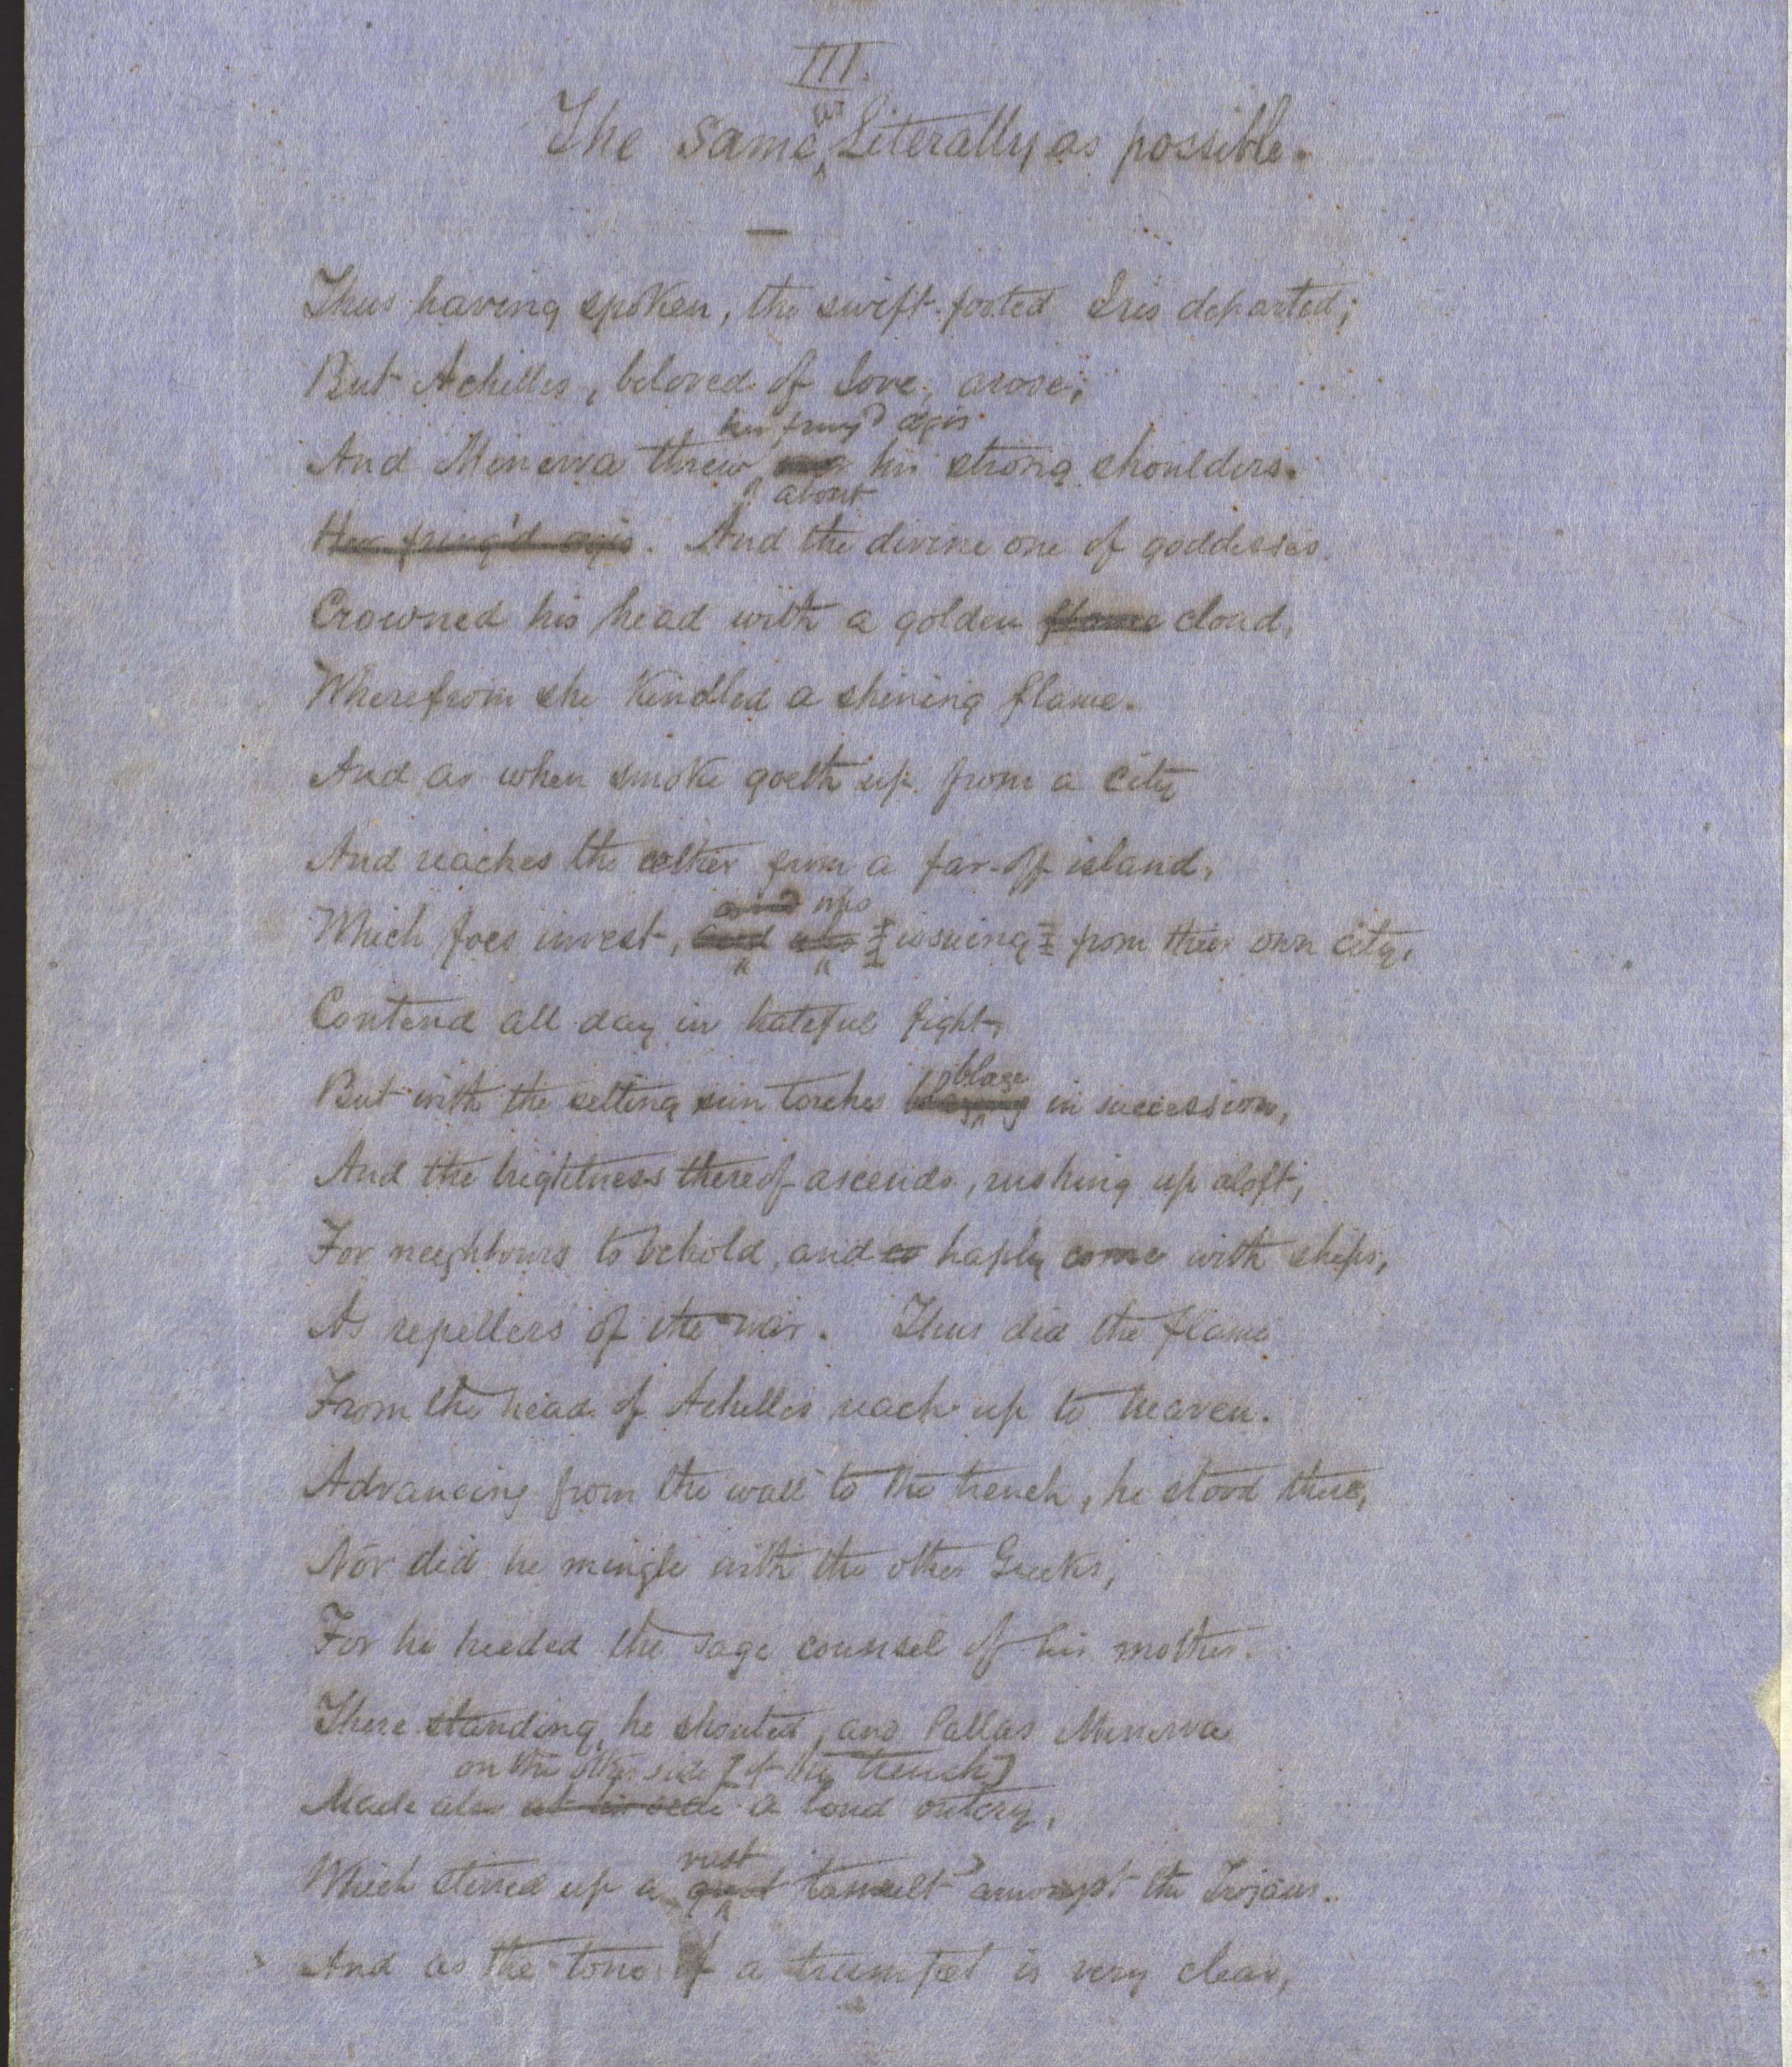 III.
The same, as Literally as possible.
Thus having spoken, the swift-footed Iris departed;
But Achilles, beloved of Jove, arose;
her fring'd ægis
And Minerva threw his strong shoulders.
about
Her fring'd ægis. And the divine one of goddesses
Crowned his head with a golden flame cloud,
Wherefrom she kindled a shining flame.
And as when smoke goeth up from a city
And reaches the æther from a far-off island,
and who
Which foes invest, and who [issuing] from their own city,
Contend all day in hateful fight,
blaze
But with the setting sun torches blazing in succession,
And the brightness thereof ascends, rushing up aloft,
For neighbours to behold, and co haply come with ships,
As repellers of the war. Thus did the flame
From the head of Achilles reach up to heaven.
Advancing from the wall to the trench, he stood there,
Nor did he mingle with the other Greeks;
For he heeded the sage counsel of his mother.
There standing, he shouted, and Pallas Minerva
on the other side [of the trench]
Made also at his side a loud outcry,
vast
Which stirred up a great tumult amongst the Trojans.
And as the tone of a trumpet is very clear,